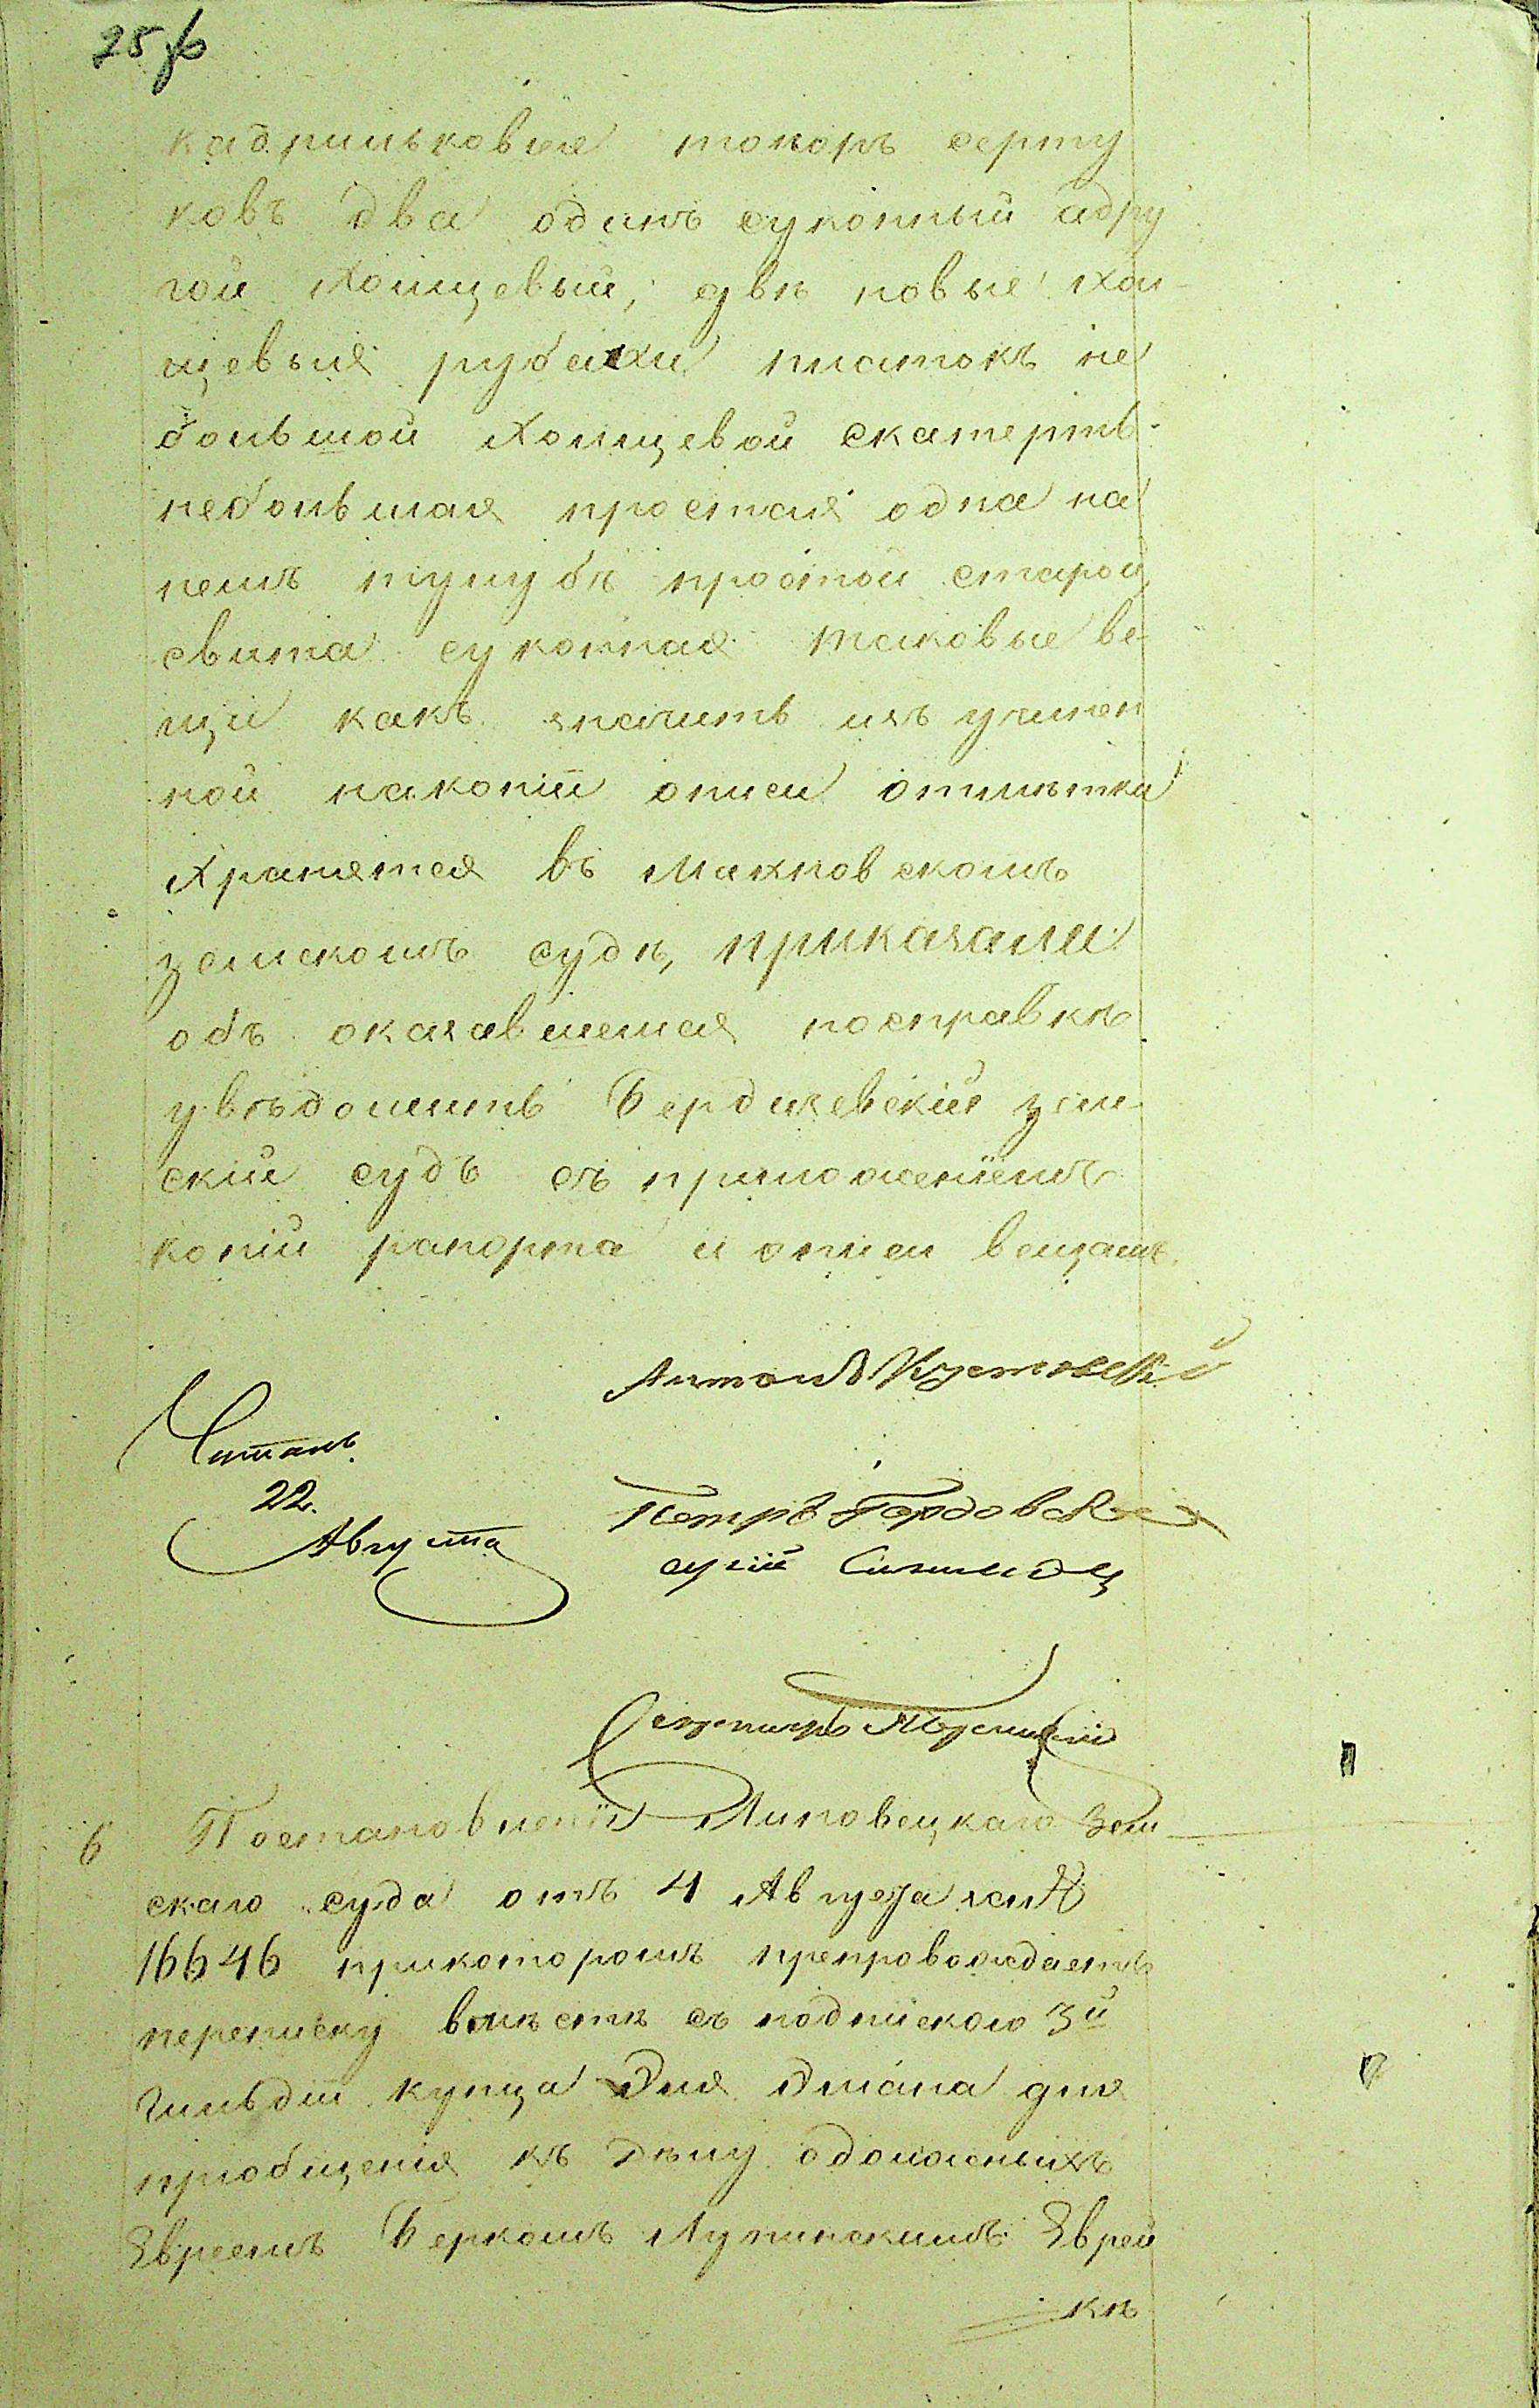 кадрильковые топоръ серту
ковъ два одинъ суконный адру
гой холщевый, двѣ новые хол-
щевыя рубахи платокъ не
большой холщевой скатерть
небольшая простая одна на
немъ тулубъ простой старой
свита суконная таковые ве-
щи какъ значитъ изъ учинен
ной накопіи описи отмѣтки
хранятся въ Махновскомъ
земскомъ судѣ, приказали
объ оказавшемся посправкѣ
увѣдомить Бердичевскій зем-
скій судъ съ приложеніемъ
копій рапорта и описи вещамъ.
Антонъ
Читалъ
22.
Августа
Петръ
Секретарь
6 Постановленіе Липовецкаго Зем-
скаго суда отъ 4 Августа за №
16646 прикоторомъ препровождаетъ
переписку вмѣстѣ съ подпискою 3й
гильдіи купца Эля Эмана для
пріобщенія къ дѣлу одолженыхъ
Евреемъ Беркомъ Лупинскимъ Еврей
кѣ